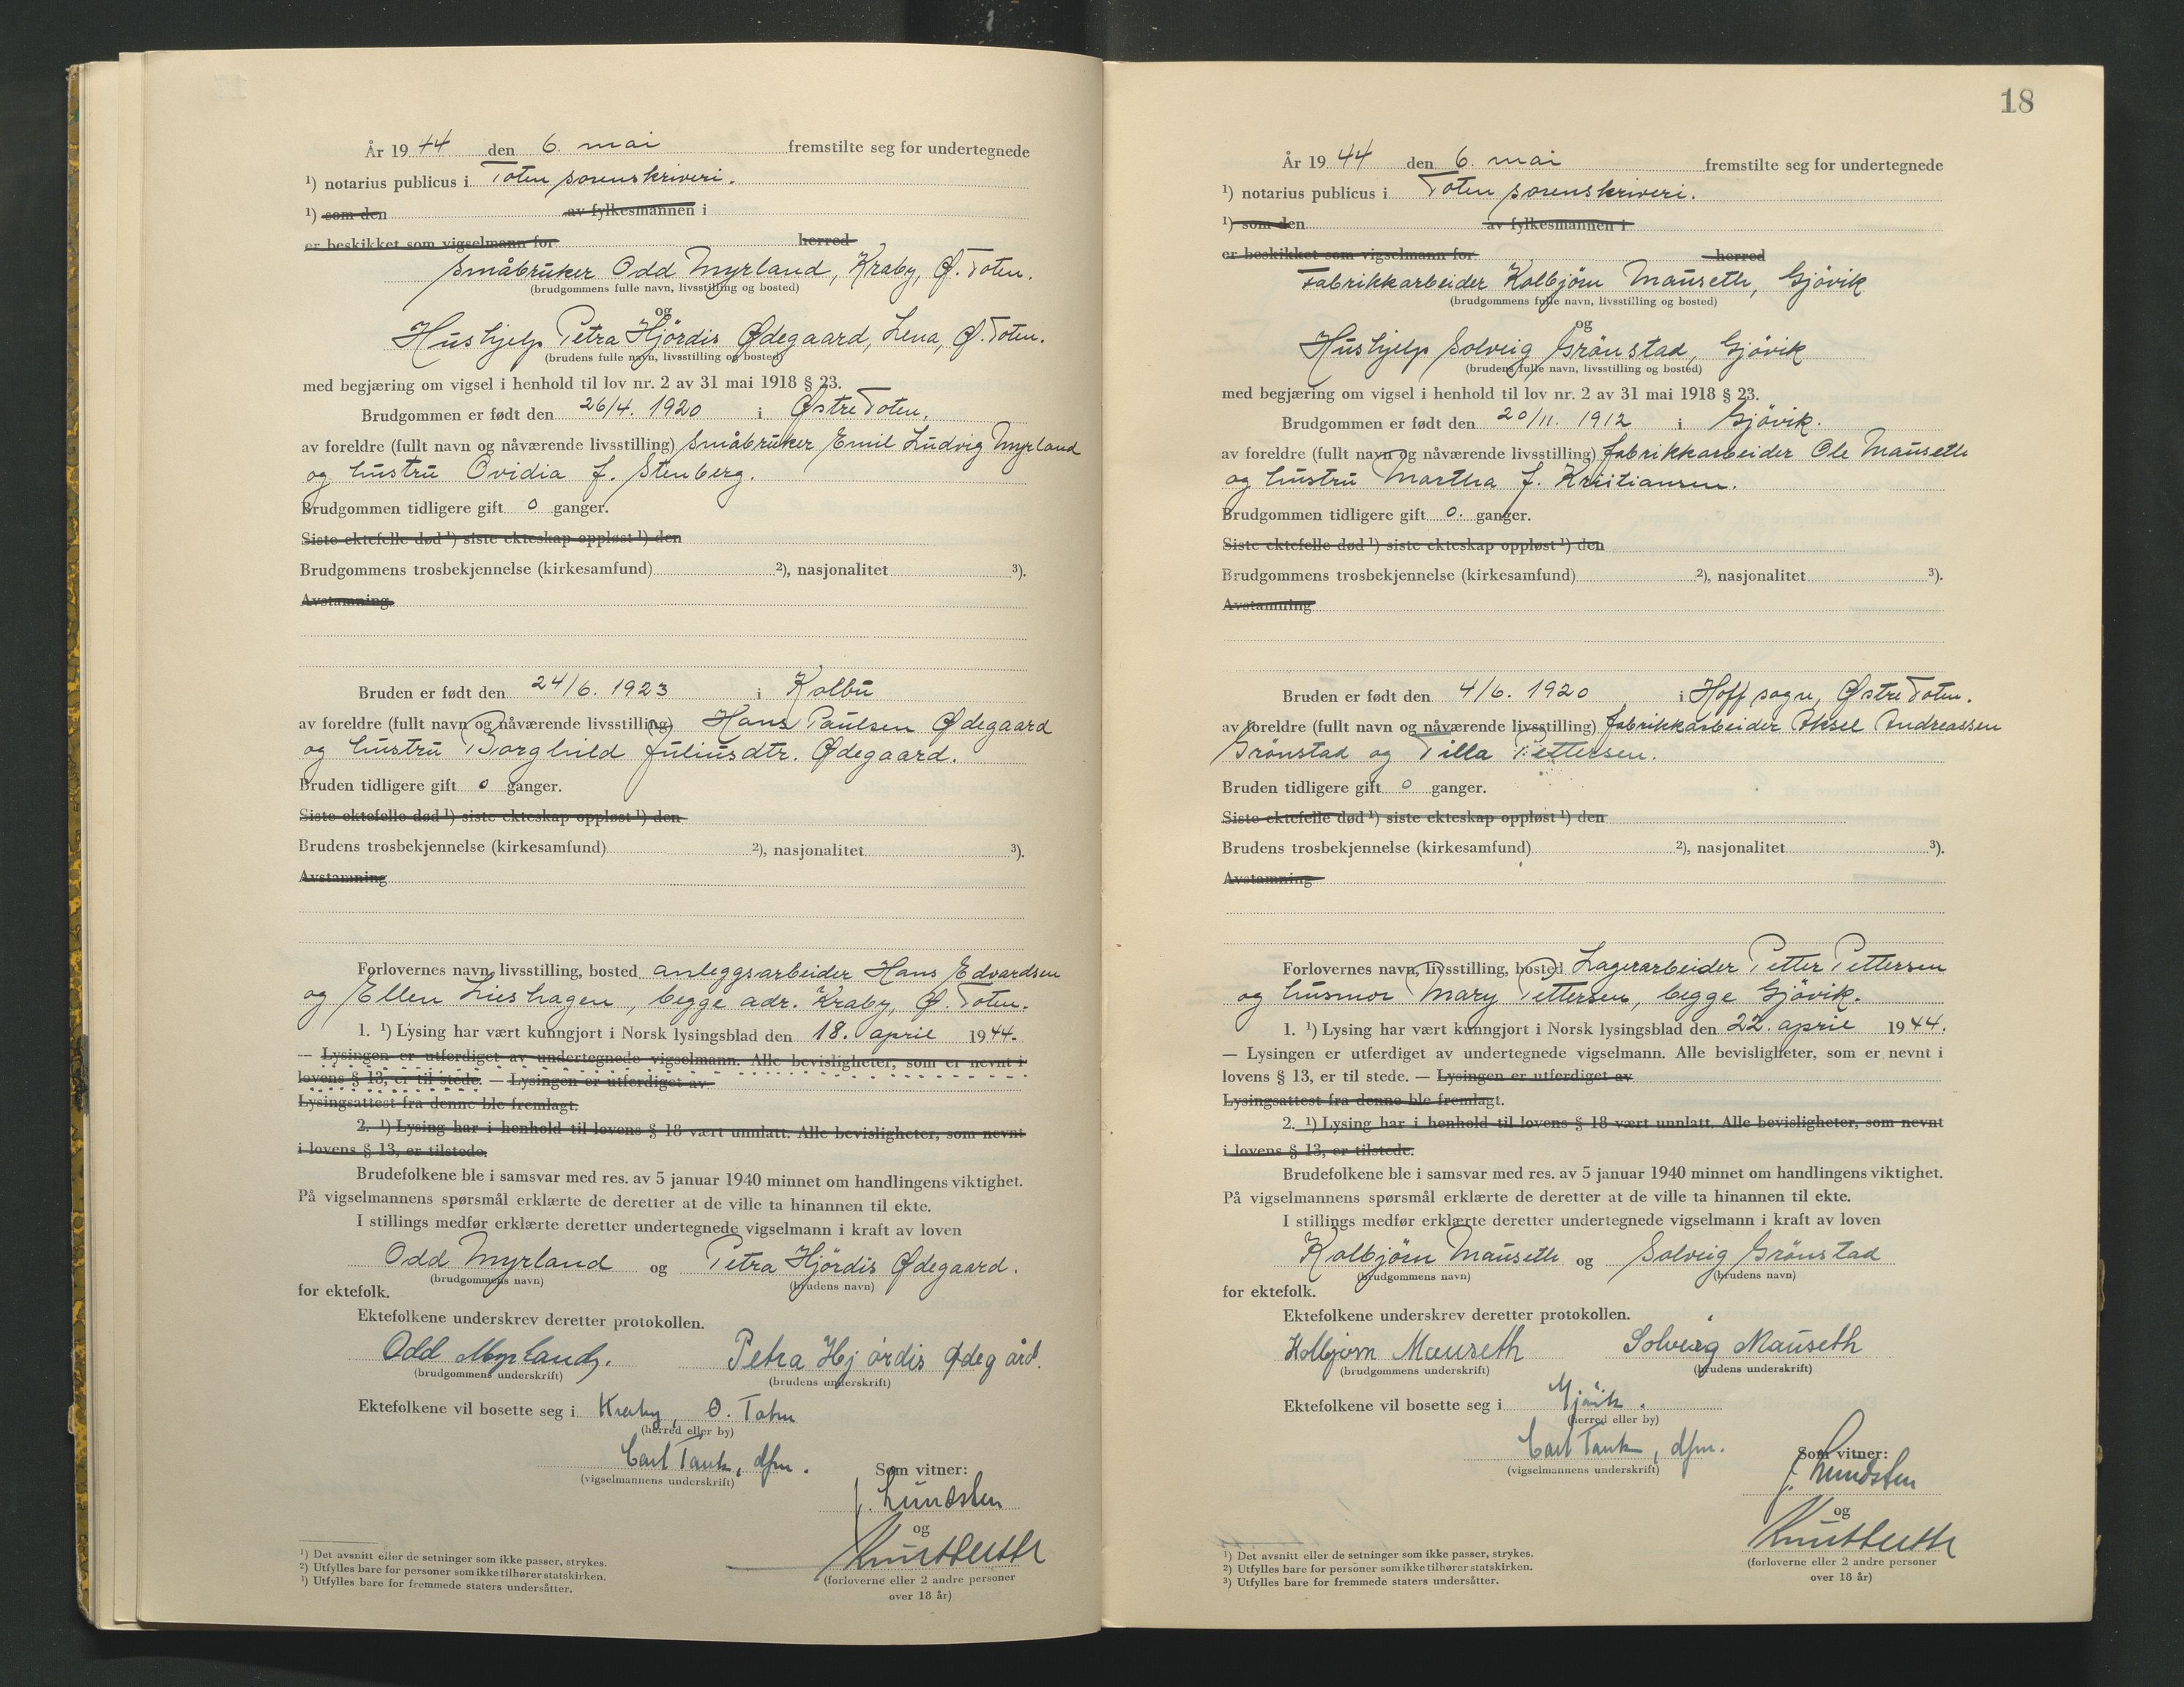 År 19 44 den 6. mai fremstilte seg for undertegnede
¹) notarius publicus i Toten sorenskriveri.
¹) som den av fylkesmannen i
er beskikket som vigselmann for herred
Småbruker Odd Myrland, Kraby, Ø. Toten.
(brudgommens fulle navn, livsstilling og bosted)
og
Hushjelp Petra Hjördis Ødegaard, Lena, Ø. Toten.
(brudens fulle navn, livsstilling og bosted)
med begjæring om vigsel i henhold til lov nr. 2 av 31 mai 1918 § 23.
Brudgommen er født den 26/4. 1920 i Østre Toten.
av foreldre (fullt navn og nåværende livsstilling) Småbruker Emil Ludvig Myrland
og hustru Ovidia f. Stenberg.
Brudgommen tidligere gift 0 ganger.
Siste ektefelle død ¹) siste ekteskap oppløst ¹) den
Brudgommens trosbekjennelse (kirkesamfund) ²), nasjonalitet ³).
Avstamning
Bruden er født den 24/6. 1923 i Kolbu
av foreldre (fullt navn og nåværende livsstilling) Hans Paulsen Ødegaard
og hustru Borghild Juliusdtr. Ødegaard.
Bruden tidligere gift 0 ganger.
Siste ektefelle død ¹) siste ekteskap oppløst ¹) den
Brudens trosbekjennelse (kirkesamfund) ²), nasjonalitet ³).
Avstamning
Forlovernes navn, livsstilling, bosted anleggsarbeider Hans Edvardsen
og Ellen Lieshagen, begge adr. Kraby, Ø. Toten.
1. ¹) Lysing har vært kunngjort i Norsk lysingsblad den 18. april 1944.
— Lysingen er utferdiget av undertegnede vigselmann. Alle bevisligheter, som er nevnt i
lovens § 13, er til stede. — Lysingen er utferdiget av
Lysingsattest fra denne ble fremlagt.
2. ¹) Lysing har i henhold til lovens § 18 vært unnlatt. Alle bevisligheter, som nevnt
i lovens § 13, er tilstede.
Brudefolkene ble i samsvar med res. av 5 januar 1940 minnet om handlingens viktighet.
På vigselmannens spørsmål erklærte de deretter at de ville ta hinannen til ekte.
I stillings medfør erklærte deretter undertegnede vigselmann i kraft av loven
Odd Myrland og Petra Hjördis Ødegaard.
(brudgommens navn) (brudens navn)
for ektefolk.
Ektefolkene underskrev deretter protokollen.
Odd Myrland. Petra Hjördis Ødegård.
(brudgommens underskrift) (brudens underskrift)
Ektefolkene vil bosette seg i Kraby, Ø. Toten
(herred eller by)
Carl Tank, dfm.
(vigselmannens underskrift)
Som vitner:
J. Lundsten
og
(forloverne eller 2 andre personer
over 18 år)
¹) Det avsnitt eller de setninger som ikke passer, strykes.
²) Utfylles bare for personer som ikke tilhører statskirken.
³) Utfylles bare for fremmede staters undersåtter.
18
År 19 44 den 6. mai fremstilte seg for undertegnede
¹) notarius publicus i Toten sorenskriveri.
¹) som den av fylkesmannen i
er beskikket som vigselmann for herred
Fabrikkarbeider Kolbjörn Mauseth, Gjövik
(brudgommens fulle navn, livsstilling og bosted)
og
Hushjelp Solveig Grönstad, Gjövik
(brudens fulle navn, livsstilling og bosted)
med begjæring om vigsel i henhold til lov nr. 2 av 31 mai 1918 § 23.
Brudgommen er født den 20/11. 1912 i Gjövik.
av foreldre (fullt navn og nåværende livsstilling) fabrikkarbeider Ole Mauseth
og hustru Martha f. Kristiansen.
Brudgommen tidligere gift 0. ganger.
Siste ektefelle død ¹) siste ekteskap oppløst ¹) den
Brudgommens trosbekjennelse (kirkesamfund) ²), nasjonalitet ³).
Avstamning
Bruden er født den 4/6. 1920 i Hoff sogn, Østre Toten.
av foreldre (fullt navn og nåværende livsstilling) fabrikkarbeider Aksel Andreassen
Grönstad og Tilla Pettersen.
Bruden tidligere gift 0 ganger.
Siste ektefelle død ¹) siste ekteskap oppløst ¹) den
Brudens trosbekjennelse (kirkesamfund) ²), nasjonalitet ³).
Avstamning
Forlovernes navn, livsstilling, bosted Lagerarbeider Petter Pettersen
og husmor Mary Pettersen, begge Gjövik.
1. ¹) Lysing har vært kunngjort i Norsk lysingsblad den 22. april 1944.
— Lysingen er utferdiget av undertegnede vigselmann. Alle bevisligheter, som er nevnt i
lovens § 13, er til stede. — Lysingen er utferdiget av
Lysingsattest fra denne ble fremlagt.
2. ¹) Lysing har i henhold til lovens § 18 vært unnlatt. Alle bevisligheter, som nevnt
i lovens § 13, er tilstede.
Brudefolkene ble i samsvar med res. av 5 januar 1940 minnet om handlingens viktighet.
På vigselmannens spørsmål erklærte de deretter at de ville ta hinannen til ekte.
I stillings medfør erklærte deretter undertegnede vigselmann i kraft av loven
Kolbjörn Mauseth og Solveig Grönstad
(brudgommens navn) (brudens navn)
for ektefolk.
Ektefolkene underskrev deretter protokollen.
Kolbjørn Mauseth Solveig Mauseth
(brudgommens underskrift) (brudens underskrift)
Ektefolkene vil bosette seg i Gjövik.
(herred eller by)
Carl Tank, dfm.
(vigselmannens underskrift)
Som vitner:
J. Lundsten
og
(forloverne eller 2 andre personer
over 18 år)
¹) Det avsnitt eller de setninger som ikke passer, strykes.
²) Utfylles bare for personer som ikke tilhører statskirken.
³) Utfylles bare for fremmede staters undersåtter.